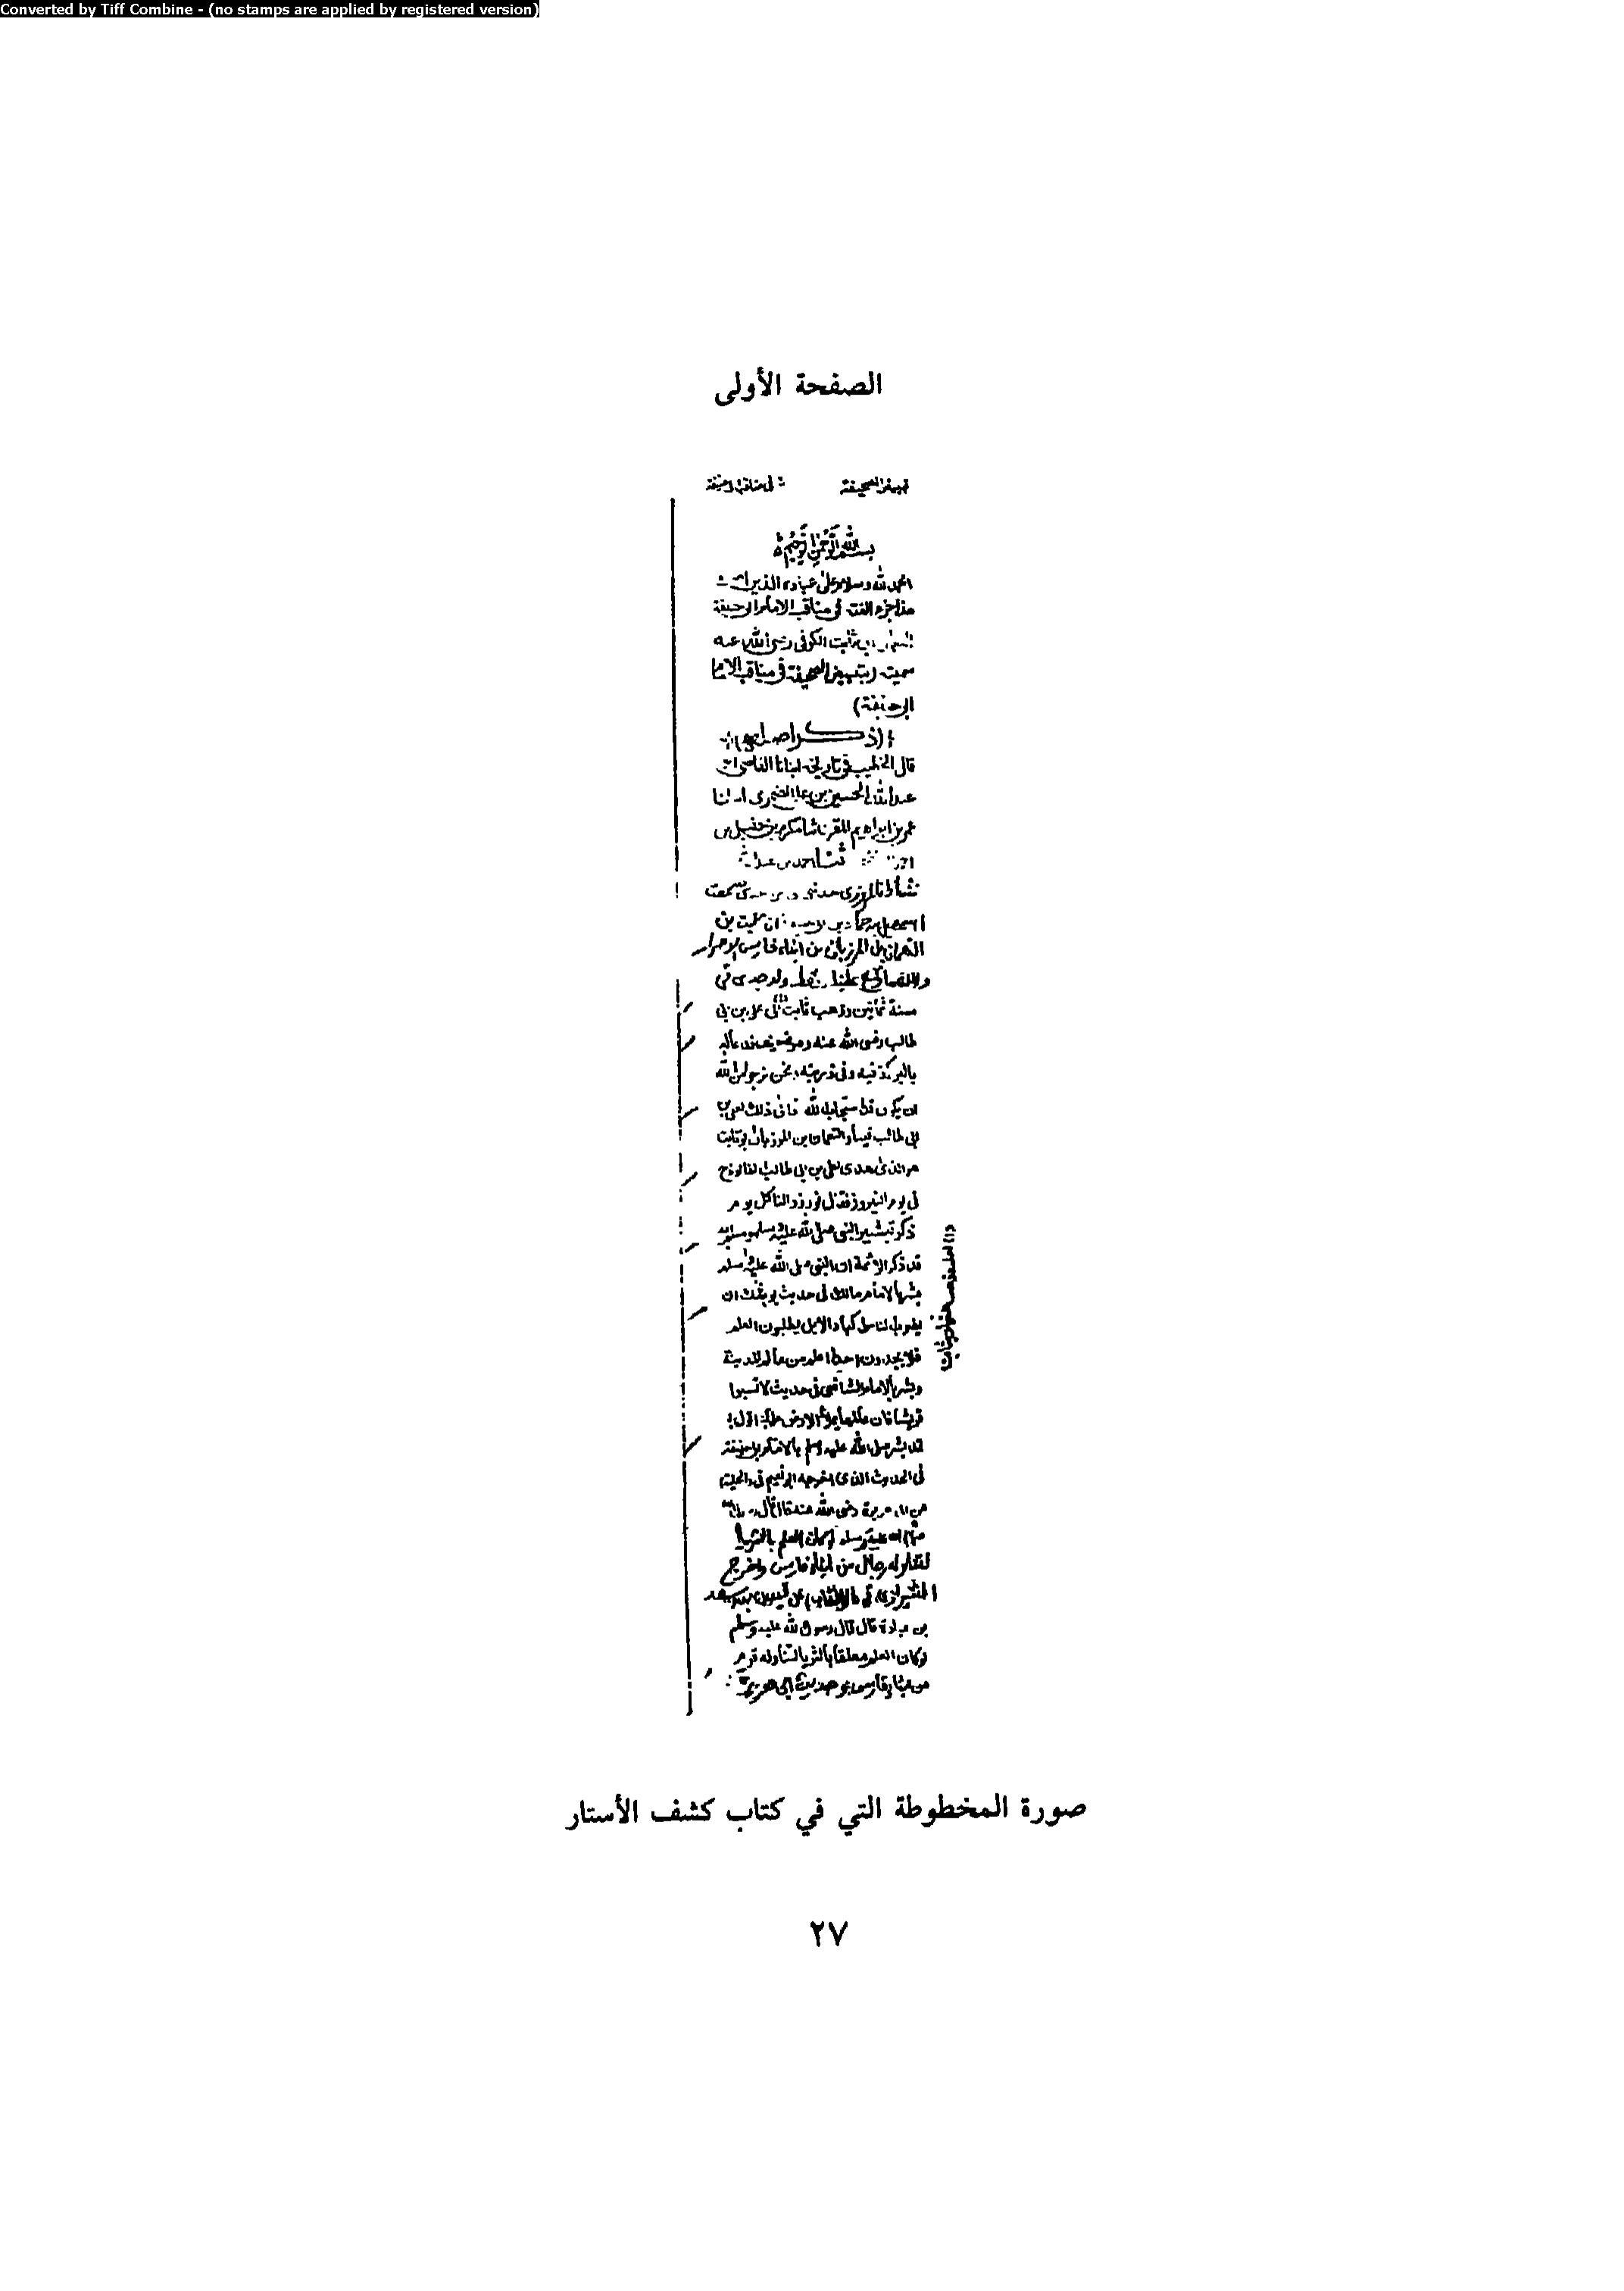 Converted by Tiff Combine - (no stamps are applied by registered version)
الصفحة الأولى
تبييض الصحيفة في مناقب ابي حنيفة
بسم الله الرحمن الرحيم
الحمد لله وسلام على عباده الذين
هذا جزء الفته في مناقب الامام ابي حنيفة
بن ثابت الكوفي رضي الله عنه
سميته (تبييض الصحيفة في مناقب الاما
ابي حنيفة)
(ذكر اصله)
قال الخطيب في تاريخه انبانا القاضي
عبد الله الحسين بن علي الصيمري
عمر بن ابراهيم المقري ثنا مكرم بن حنبل بن
ثنا احمد بن
شاذان المروزي حدثني سمعت
اسمعيل بن حماد بن
النعمان بن المرزبان من ابناء فارس الاحرار
والله ما وقع علينا رق قط ولد جدي في
سنة ثمانين وذهب ثابت الى علي بن ابي
طالب رضي الله عنه وهو صغير فدعا له
بالبركة فيه وفي ذريته ونحن نرجو من الله
ان يكون قد استجاب الله تعالى ذلك لعلي بن
ابي طالب فينا والنعمان بن المرزبان ابو ثابت
هو الذي اهدى لعلي بن ابي طالب الفالوذج
في يوم النيروز فقال نوروزنا كل يوم
ذكر تبشير النبي صلى الله عليه وسلم به
قد ذكر الائمة ان النبي صلى الله عليه وسلم
بشر بالامام مالك في حديث يوشك ان
يضرب الناس اكباد الابل يطلبون العلم
فلا يجدون احدا اعلم من عالم المدينة
وبشر بالامام الشافعي في حديث لا تسبوا
قريشا فان عالمها يملأ الارض علما اقول و
قد بشر صلى الله عليه وسلم بالامام ابي حنيفة
في الحديث الذي اخرجه ابو نعيم في (الحلية)
عن ابي هريرة رضي الله عنه قال قال رسول الله
صلى الله عليه وسلم لو كان العلم بالثريا
لتناوله رجال من ابناء فارس واخرج
الشيرازي في (الالقاب) عن قيس بن سعد
بن عبادة قال قال رسول الله عليه وسلم
لو كان العلم معلقا بالثريا لتناوله قوم
من ابناء فارس وحديث ابي هريرة
صورة المخطوطة التي في كتاب كشف الأستار
٢٧